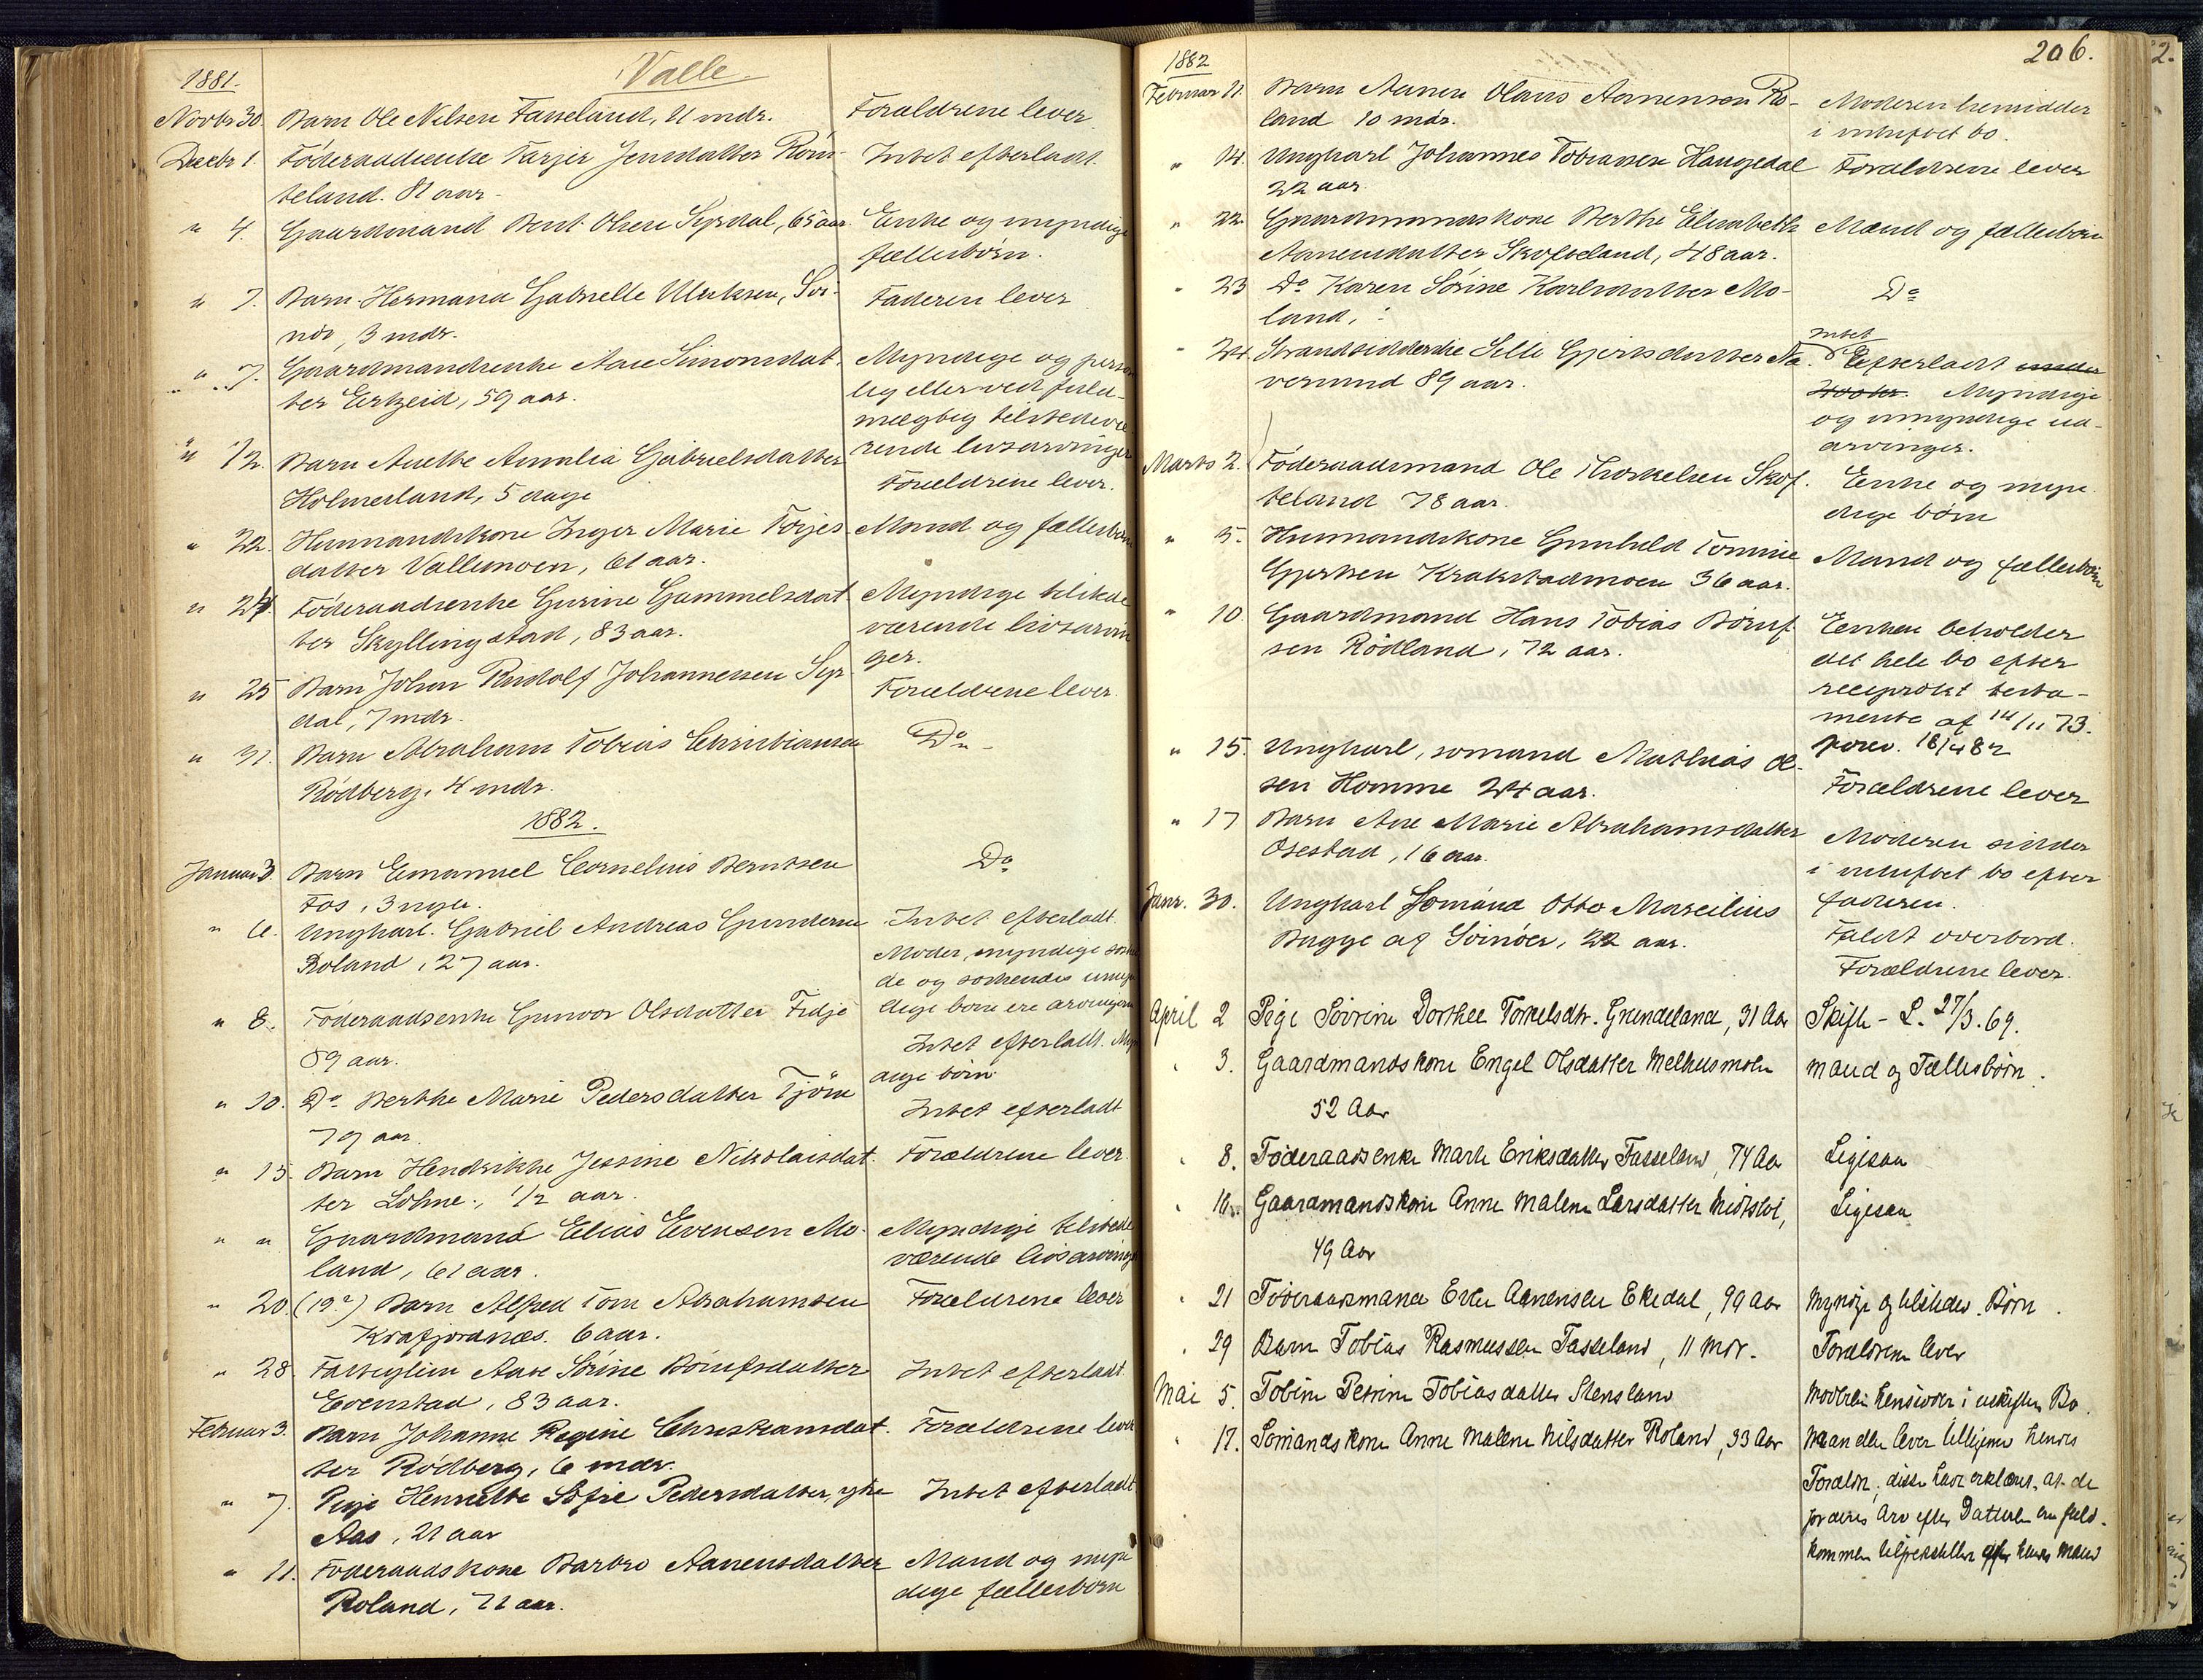 1881.
Valle.
Novbr 30. Barn Ole Nilsen Fasseland, 11 mdr. Forældrene lever.
Decbr 1. Föderaadsenke Tarjer Jensdatter Röns- Intet efterladt.
teland. 81 aar.
" 4. Gaardmand Bent Olsen Syrdal, 65 aar. Enke og myndige
fællesbörn.
" 7. Barn Hermana Gabrielle Ulriksen, Svi- Faderen lever
nör, 3 mdr.
" 7. Gaardmandsenke Aase Simonsdat- Myndige og person
ter Eikeid, 59 aar. lig eller ved fuld-
mægtig tilstedevæ
rende livsarvinger
" 12. Barn Anette Amalia Gabrielsdatter
Holmesland, 5 dage Forældrene lever.
" 22. Husmandskone Inger Marie Törjes- Mand og fællesbörn
datter Vallemoen, 61 aar.
" 24. Föderaadsenke Gurine Gammelsdat- Myndige tilstede
ter Skyllingstad, 83 aar. værende livsarvin
ger.
" 25 Barn Johan Rudolf Johannesen Syr- Forældrene lever.
dal, 7 mdr.
" 31. Barn Abraham Tobias Christiansen Do
Rödberg, 4 mdr.
1882.
Januar 3. Barn Emanuel Cornelius Berntsen Do
Fos, 3 uger.
" 6. Ungkarl. Gabriel Andreas Gundersen Intet efterladt.
Roland, 27 aar. Moder, myndige
de og umyn
dige börn ere arvinger
" 8. Föderaadsenke Gunvor Olsdatter Fidje
89 aar. Intet efterladt. Myn
dige börn.
" 10. Do Berthe Marie Pedersdatter Tjöm Intet efterladt
79 aar.
" 15. Barn Hendrikke Jessine Nikolaisdat- Forældrene lever.
ter Löhne, 1/2 aar.
" " Gaardmand Elias Evensen Mo- Myndige tilstede
land, 61 aar. værende livsarvinger
" 20. (19?) Barn Alfred Tom Abrahamsen Forældrene lever
Krafjordnæs. 6 aar.
" 28. Fattiglem Aase Sörine Börufsdatter Intet efterladt.
Evenstad, 83 aar.
Februar 3. Barn Johanne Regine Christiansdat- Forældrene lever
ter Rödberg, 6 mdr.
" 7. Pige Henriette Sofie Pedersdatter, ytre Intet efterladt.
Aas, 21 aar
" 11. Föderaadskone Barbro Aanensdatter Mand og myn
Roland, 71 aar. dige fællesbörn
206.
1882
Februar 11. Barn Aanen Olaus Aanensen Ro- Moderen hensidder
land 10 mdr. i uskiftet bo.
" 14. Ungkarl Johannes Tobiassen Haugedal Forældrene lever
22 aar.
" 22. Gaardmandskone Berthe Elisabeth Mand og fællesbörn
Aanensdatter Skofteland, 48 aar.
" 23 Do Karen Sörine Karlsdatter Mo- Do
land,
" 24. Strandsidderske Sille Gjertsdatter Na- Intet Efterladt
versund 89 aar. Myndige
og umyndige ud-
arvinger.
Marts 2. Föderaadsmand Ole Thorkelsen Skof- Enke og myn-
teland 78 aar. dige börn
" 5. Husmandskone Gunhild Tomine Mand og fællesbörn
Gjertsen Krakstadmoen 36 aar.
" 10 Gaardmand Hans Tobias Börufs- Enken beholder
sen Rödland, 72 aar. det hele bo efter
reciprokt testa-
mente af 14/11 73.
" 15. Ungkarl, sömand Mathias Ol-
sen Homme 24 aar. Forældrene lever
" 17 Barn Ane Marie Abrahamsdatter Moderen sidder
Osestad, 16 aar. i uskiftet bo efter
faderen.
Janr. 30. Ungkarl Sömand Otto Marcilius
Bugge af Svinöer, 22 aar. Faldt overbord.
Forældrene lever.
April 2 Pige Sörine Dorthee Torkelsdtr. Grundeland, 31 Aar Skifte - L. 27/3. 69.
" 3. Gaardmandskone Engel Olsdatter Melhusmoen Mand og Fællesbörn.
52 Aar
" 8. Föderaadsenke Marte Eriksdatter Fasseland, 74 Aar Ligesaa
" 16. Gaardmandskone Anne Malene Larsdatter Midtbö, Ligesaa
49 Aar
" 21 Föderaadsmand Even Aanensen Ekedal, 99 Aar Myndige og tilstedev. Börn.
" 29 Barn Tobias Rasmussen Fasseland, 11 Mdr. Forældrene lever
Mai 5. Tobine Petrine Tobiasdatter Stensland Moderen hensidder i uskiftet Bo.
" 17. Sömandskone Anne Malene Nilsdatter Roland, 33 Aar Manden lever tilligemed hendes
Forældre, disse have erklæret, at de
for deres Arv efter Datteren ere fuld-
kommen tilfredsstillet efter hendes Mand